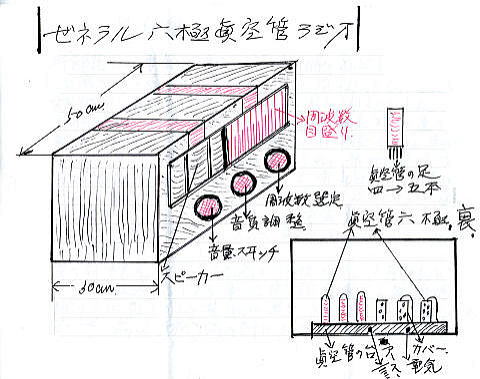 ゼネラル六極真空管ラジオ
50cm
周波数
目盛り
真空管の足
四→五本
周波数選定
音質調整
音量スイッチ
スピーカー
30cm
真空管六極
裏
真空管の台
カバー